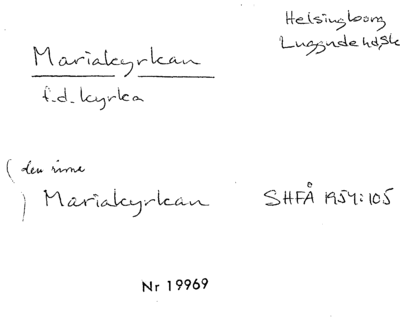 Helsingborg
Luggude hd, Sk
Mariakyrkan
f.d. kyrka
(den
) Mariakyrkan SHFÅ 1954:105
Nr 19969